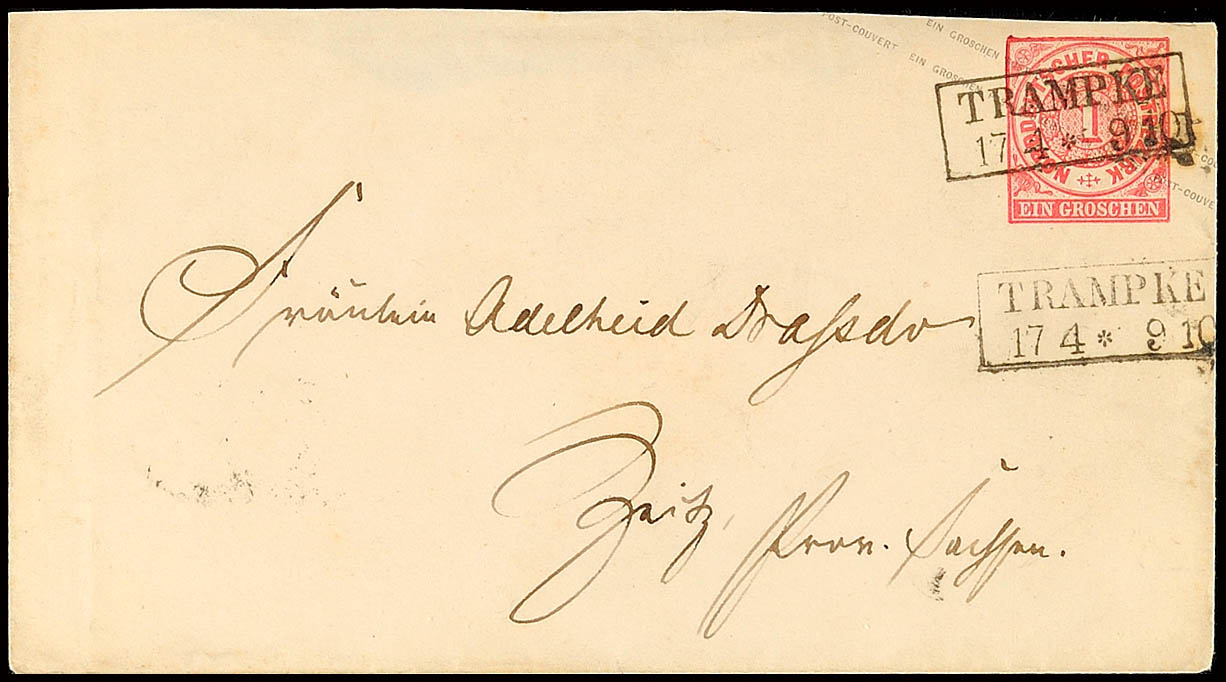 POST-COUVERT EIN GROSCHEN
EIN GROSCHEN
NORDDEUTSCHER POSTBEZIRK
1
EIN GROSCHEN
TRAMPKE
17 4 * 9 10
POST-COUVE
TRAMPKE
17 4 * 9 10
Fräulein Adelheid
Zeitz, Prov. Sachsen.